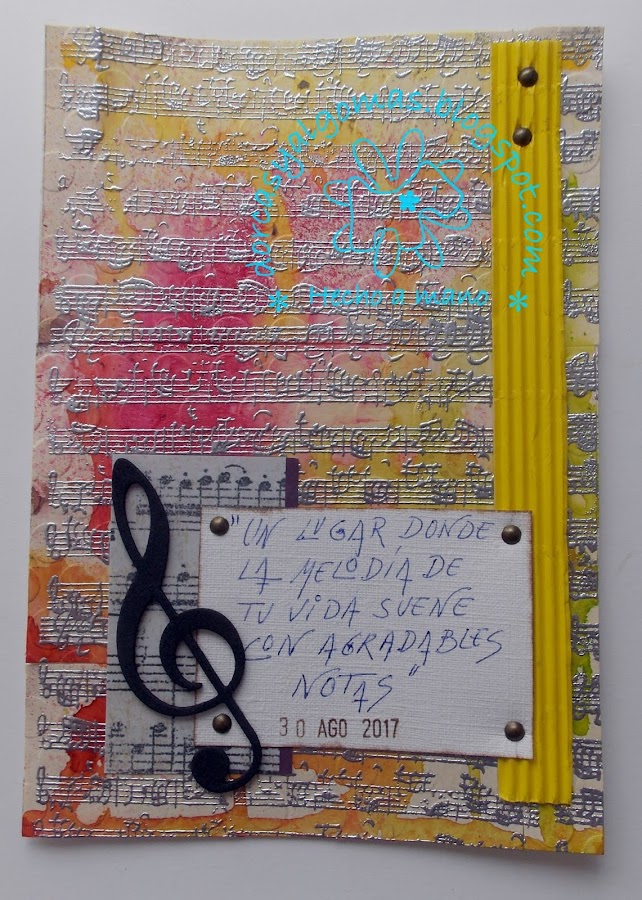 dorcasyalgomas.blogspot.com
* Hecho a mano *
"UN LUGAR, DONDE
LA MELODÍA DE
TU VIDA SUENE
CON AGRADABLES
NOTAS"
30 AGO 2017